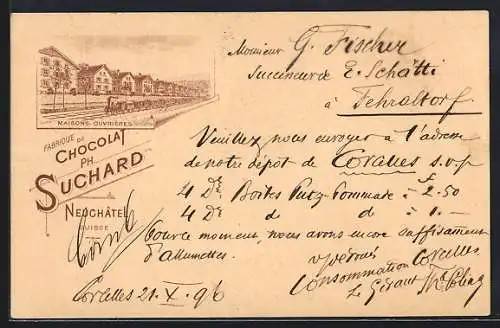 MAISONS OUVRIÈRES
FABRIQUE DE
CHOCOLAT
PH.
SUCHARD
NEUCHÂTEL
SUISSE
Monsieur G. Fischer
Successeur de E. Schätti
à Fehraltorf
Veuillez nous envoyer à l'adresse
de notre dépôt de Corcelles s.v.p
4 Dz Boites Putz-Pommade à 2.50
4 Dz d d à 1.—
Pour le moment, nous avons encore suffisamment
d'allumettes.
Consommation Corcelles
Le Gérant
Corcelles 21. X. 96